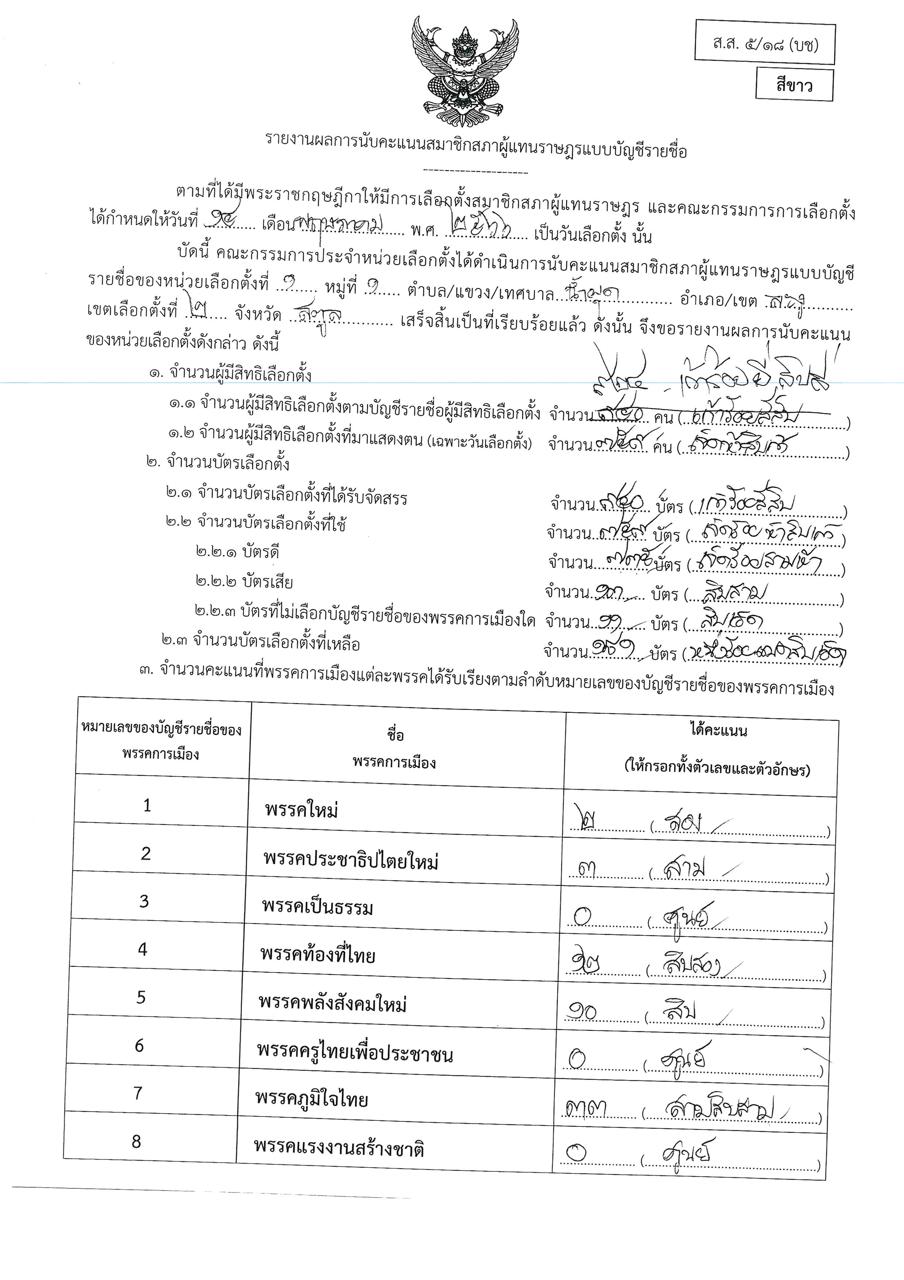 ส.ส. ๕/๑๘ (บช)
สีขาว
รายงานผลการนับคะแนนสมาชิกสภาผู้แทนราษฎรแบบบัญชีรายชื่อ
--------------------
ตามที่ได้มีพระราชกฤษฎีกาให้มีการเลือกตั้งสมาชิกสภาผู้แทนราษฎร และคณะกรรมการการเลือกตั้ง
ได้กำหนดให้วันที่ ๑๔ เดือน พฤษภาคม พ.ศ. ๒๕๖๖ เป็นวันเลือกตั้ง นั้น
บัดนี้ คณะกรรมการประจำหน่วยเลือกตั้งได้ดำเนินการนับคะแนนสมาชิกสภาผู้แทนราษฎรแบบบัญชี
รายชื่อของหน่วยเลือกตั้งที่ ๑ หมู่ที่ ๑ ตำบล/แขวง/เทศบาล น้ำผุด อำเภอ/เขต ละงู
เขตเลือกตั้งที่ ๒ จังหวัด สตูล เสร็จสิ้นเป็นที่เรียบร้อยแล้ว ดังนั้น จึงขอรายงานผลการนับคะแนน
ของหน่วยเลือกตั้งดังกล่าว ดังนี้
๑. จำนวนผู้มีสิทธิเลือกตั้ง
๑.๑ จำนวนผู้มีสิทธิเลือกตั้งตามบัญชีรายชื่อผู้มีสิทธิเลือกตั้ง จำนวน ๙๔๐ คน (เก้าร้อยสี่สิบ)
๑.๒ จำนวนผู้มีสิทธิเลือกตั้งที่มาแสดงตน (เฉพาะวันเลือกตั้ง) จำนวน ๗๕๙ คน ( )
๒. จำนวนบัตรเลือกตั้ง
๒.๑ จำนวนบัตรเลือกตั้งที่ได้รับจัดสรร จำนวน ๙๔๐ บัตร (เก้าร้อยสี่สิบ)
๒.๒ จำนวนบัตรเลือกตั้งที่ใช้ จำนวน ๗๕๙ บัตร (เจ็ดร้อยห้าสิบเก้า)
๒.๒.๑ บัตรดี จำนวน ๗๓๕ บัตร (เจ็ดร้อยสามห้า)
๒.๒.๒ บัตรเสีย จำนวน ๑๓ บัตร (สิบสาม)
๒.๒.๓ บัตรที่ไม่เลือกบัญชีรายชื่อของพรรคการเมืองใด จำนวน ๑๑ บัตร (สิบเอ็ด)
๒.๓ จำนวนบัตรเลือกตั้งที่เหลือ จำนวน ๑๘๑ บัตร (หนึ่งร้อยแปดสิบเอ็ด)
๓. จำนวนคะแนนที่พรรคการเมืองแต่ละพรรคได้รับเรียงตามลำดับหมายเลขของบัญชีรายชื่อของพรรคการเมือง
หมายเลขของบัญชีรายชื่อของ
พรรคการเมือง
ชื่อ
พรรคการเมือง
ได้คะแนน
(ให้กรอกทั้งตัวเลขและตัวอักษร)
1 พรรคใหม่ ๒ (สอง)
2 พรรคประชาธิปไตยใหม่ ๓ (สาม)
3 พรรคเป็นธรรม ๐ (ศูนย์)
4 พรรคท้องที่ไทย ๑๒ (สิบสอง)
5 พรรคพลังสังคมใหม่ ๑๐ (สิบ)
6 พรรคครูไทยเพื่อประชาชน ๐ (ศูนย์)
7 พรรคภูมิใจไทย ๓๓ (สามสิบสาม)
8 พรรคแรงงานสร้างชาติ ๐ (ศูนย์)